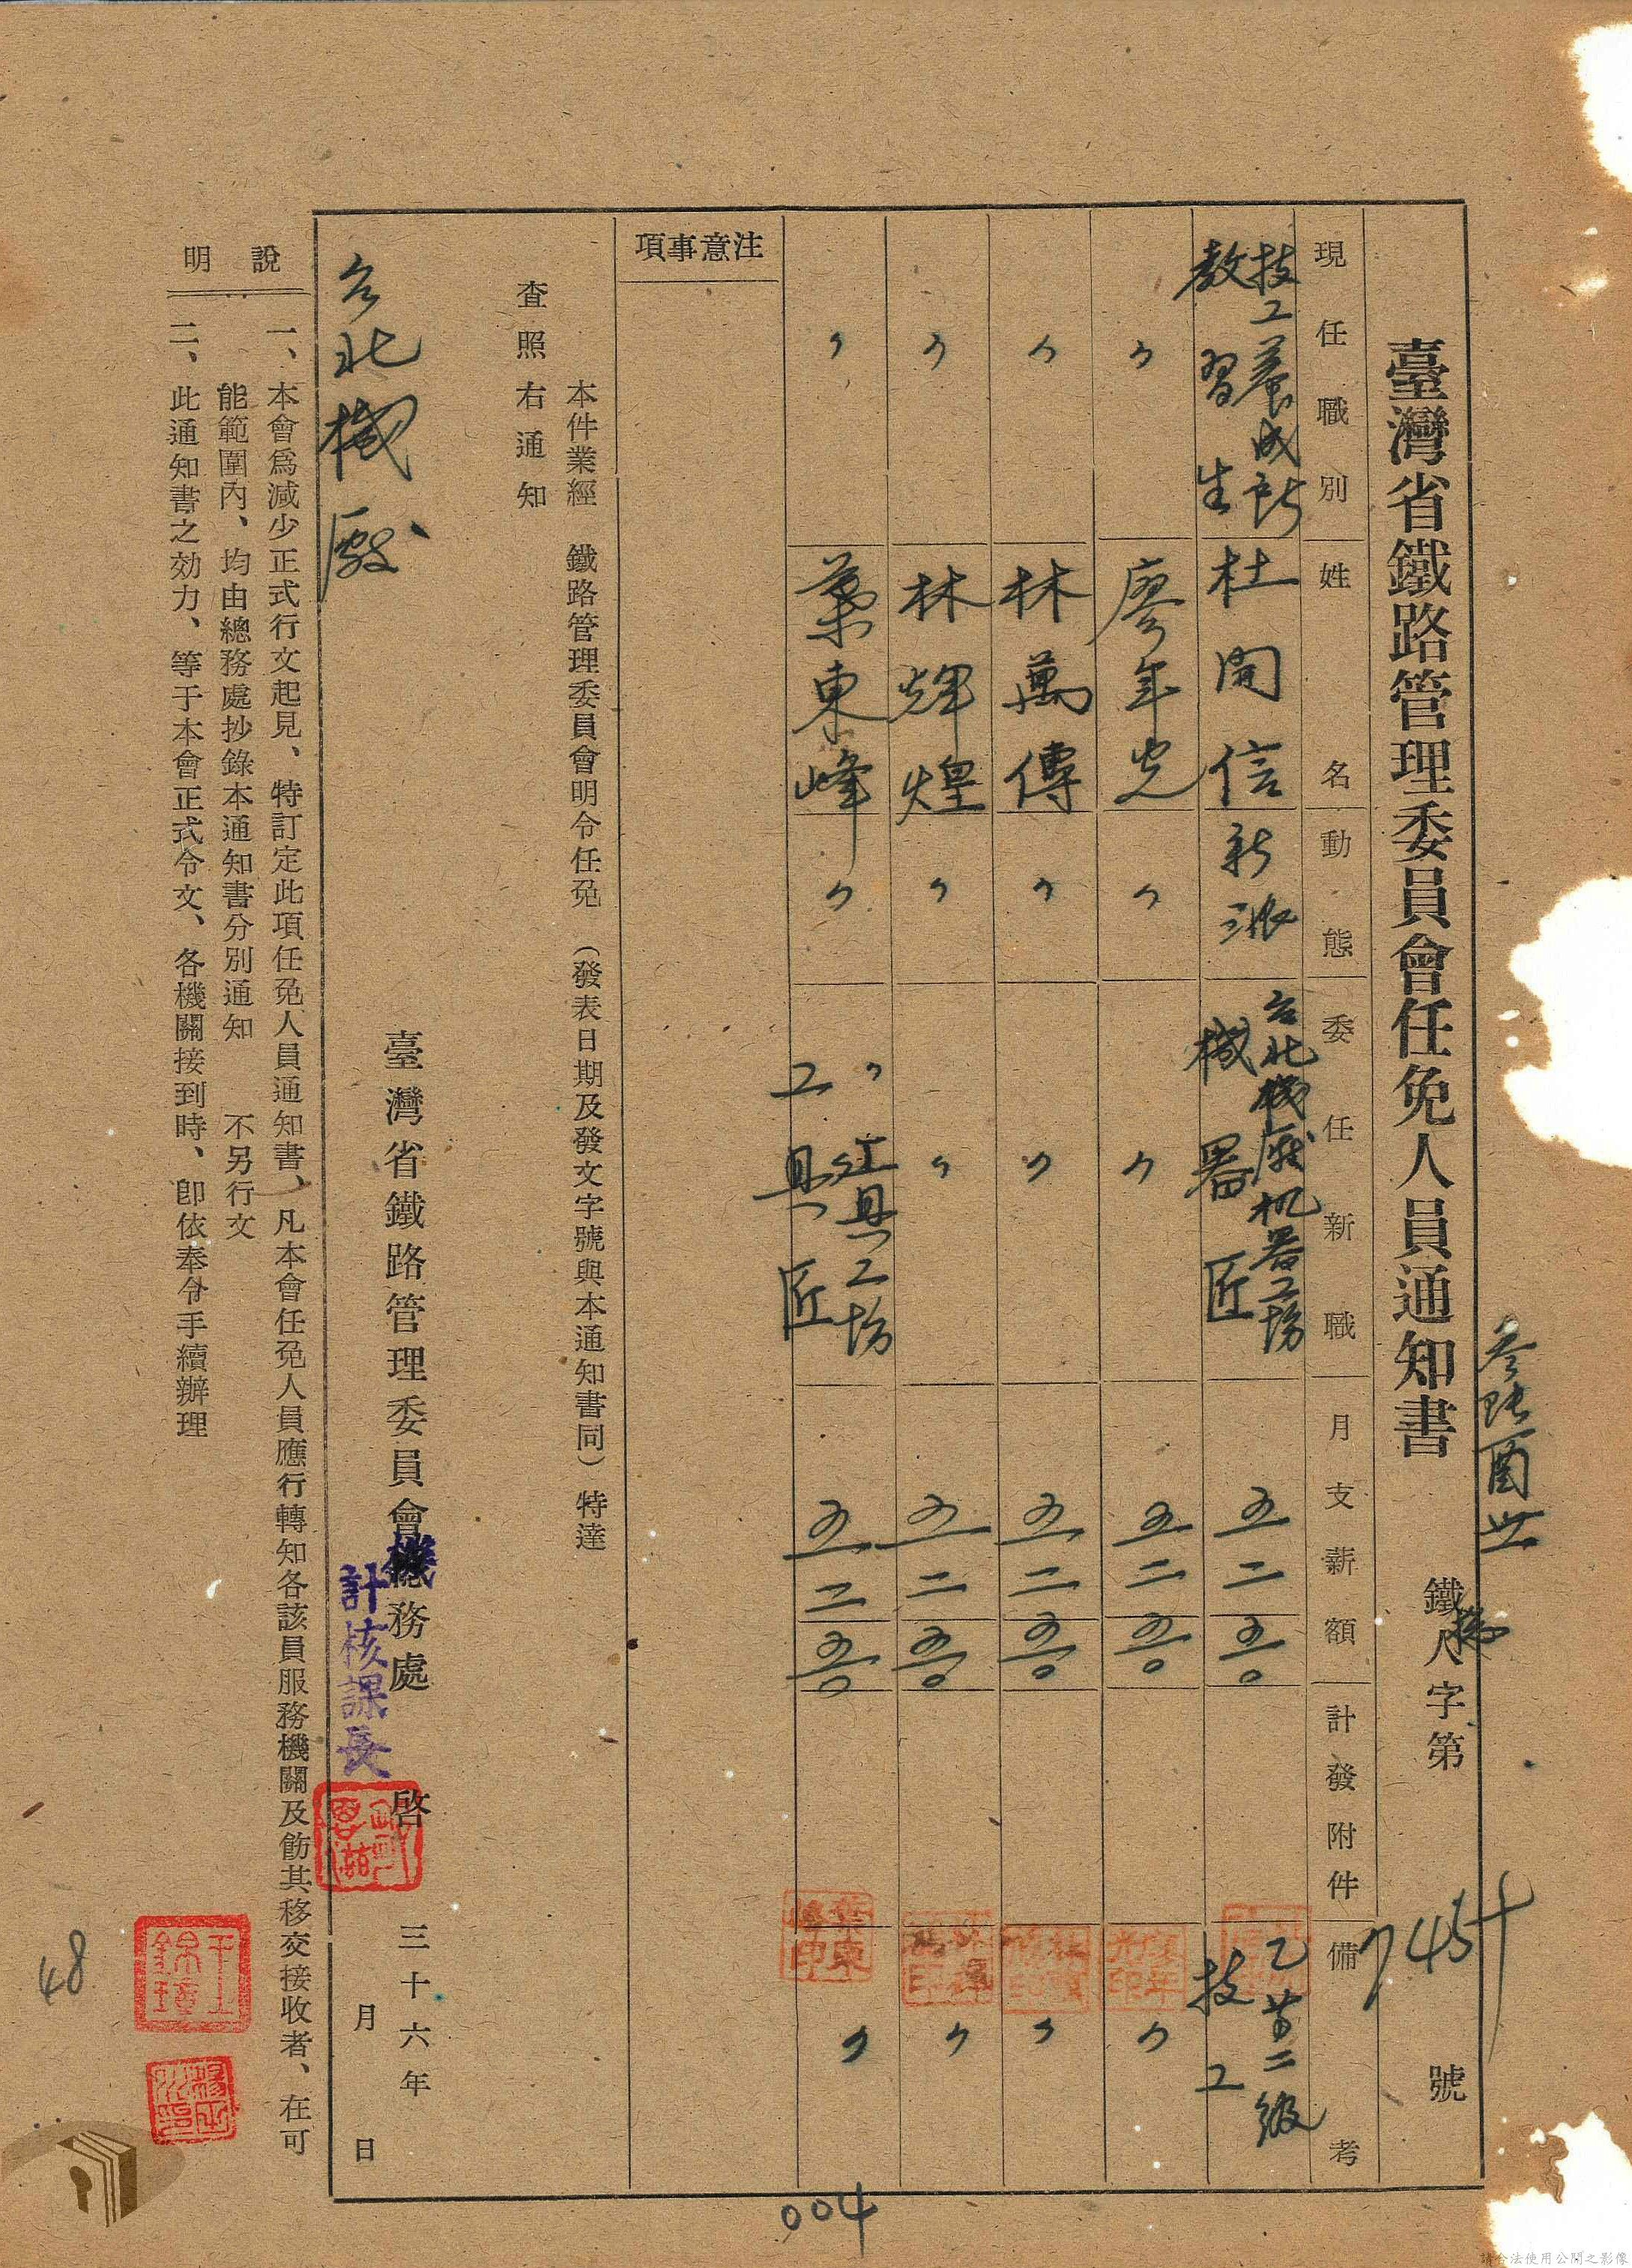 臺灣省鐵路管理委員會任免人員通知書
鐵人字第
7454
號
現任職別
姓名
動態
委任新職
月支薪額
計發附件
備考
技工養成所
教習生
杜開信
新派
台北機廠机器工坊
機器匠
五二五〇
乙第二級
技工
〃
廖年光
〃
〃
五二五〇
〃
〃
林萬傳
〃
〃
五二五〇
〃
〃
林輝煌
〃
〃
五二五〇
〃
〃
葉東峰
〃
〃工具工坊
工具匠
五二五〇
〃
注意事項
本件業經 鐵路管理委員會明令任免 (發表日期及發文字號與本通知書同) 特達
查照 右通知
台北機廠
臺灣省鐵路管理委員會 務處 啓
機
計核課長
三十六年
月 日
說明
一、本會爲減少正式行文起見、特訂定此項任免人員通知書、凡本會任免人員應行轉知各該員服務機關及飭其移交接收者、在可
能範圍內、均由總務處抄錄本通知書分別通知 不另行文
二、此通知書之効力、等于本會正式令文、各機關接到時、卽依奉令手續辦理
48
004
請合法使用公開之影像